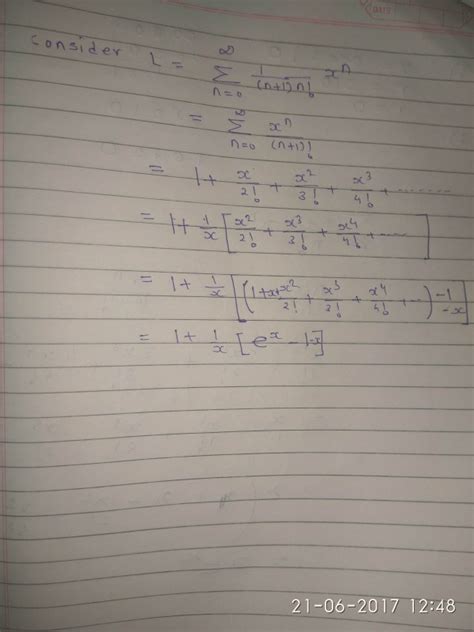 Consider L = ∑_{n=0}^{∞} 1/((n+1) n!) x^n
= ∑_{n=0}^{∞} x^n/(n+1)!
= 1 + x/2! + x^2/3! + x^3/4! + ......
= 1 + 1/x [x^2/2! + x^3/3! + x^4/4! + ....]
= 1 + 1/x [(1+x+x^2/2! + x^3/3! + x^4/4! + ...) -1 -x]
= 1 + 1/x [e^x - 1-x]
21-06-2017 12:48